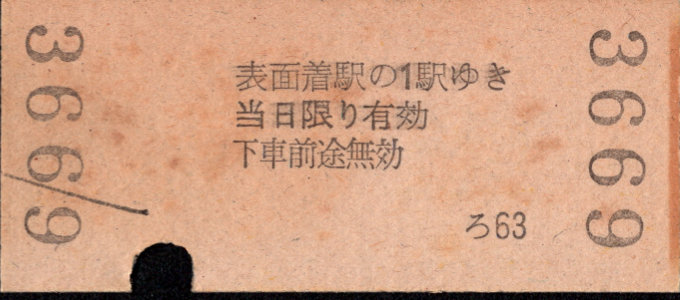 3669
表面着駅の1駅ゆき
当日限り有効
下車前途無効
ろ63
3669